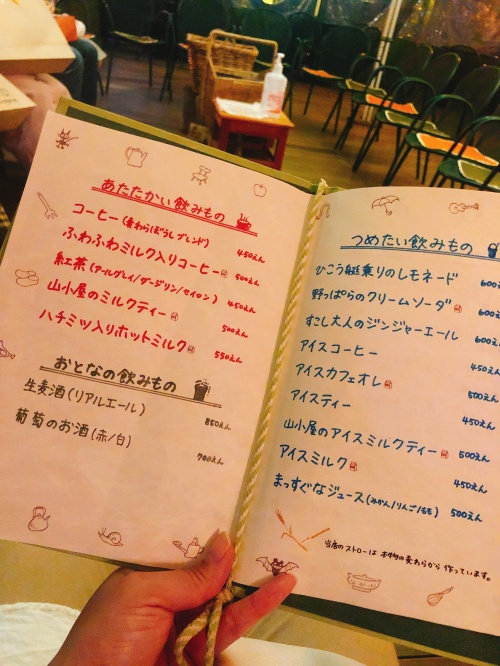 あたたかい飲みもの
コーヒー(麦わらぼうしブレンド) 450えん
ふわふわミルク入りコーヒー 500えん
紅茶(アールグレイ/ダージリン/セイロン) 450えん
山小屋のミルクティー 500えん
ハチミツ入りホットミルク 550えん
おとなの飲みもの
生麦酒(リアルエール) 850えん
葡萄のお酒(赤/白) 700えん
つめたい飲みもの
ひこう艇乗りのレモネード 600
野っぱらのクリームソーダ 600え
すこし大人のジンジャーエール 600え
アイスコーヒー 450え
アイスカフェオレ 500えん
アイスティー 450えん
山小屋のアイスミルクティー 500えん
アイスミルク 450えん
まっすぐなジュース(みかん/りんご/もも) 500えん
当店のストローは本物の麦わらから作っています。